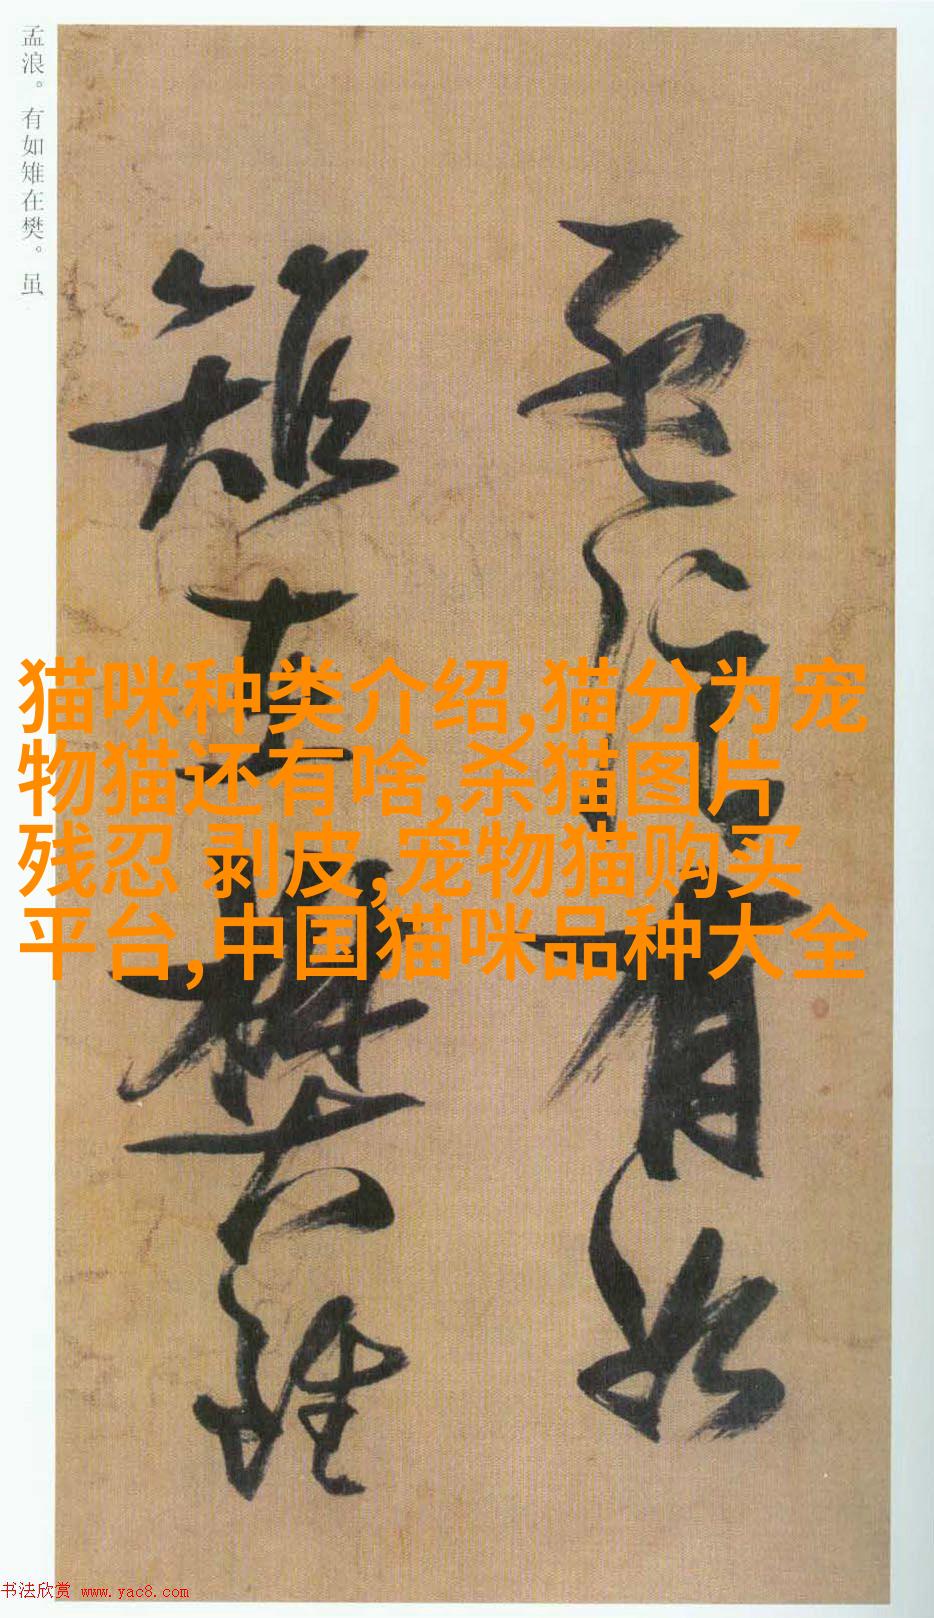 孟浪。有如雉在樊。虽
孟浪有如
雉在樊虽
猫咪种类介绍,猫分为宠
物猫还有啥,杀猫图片
残忍 剥皮,宠物猫购买
平台,中国猫咪品种大全
书法欣赏 www.yac8.com